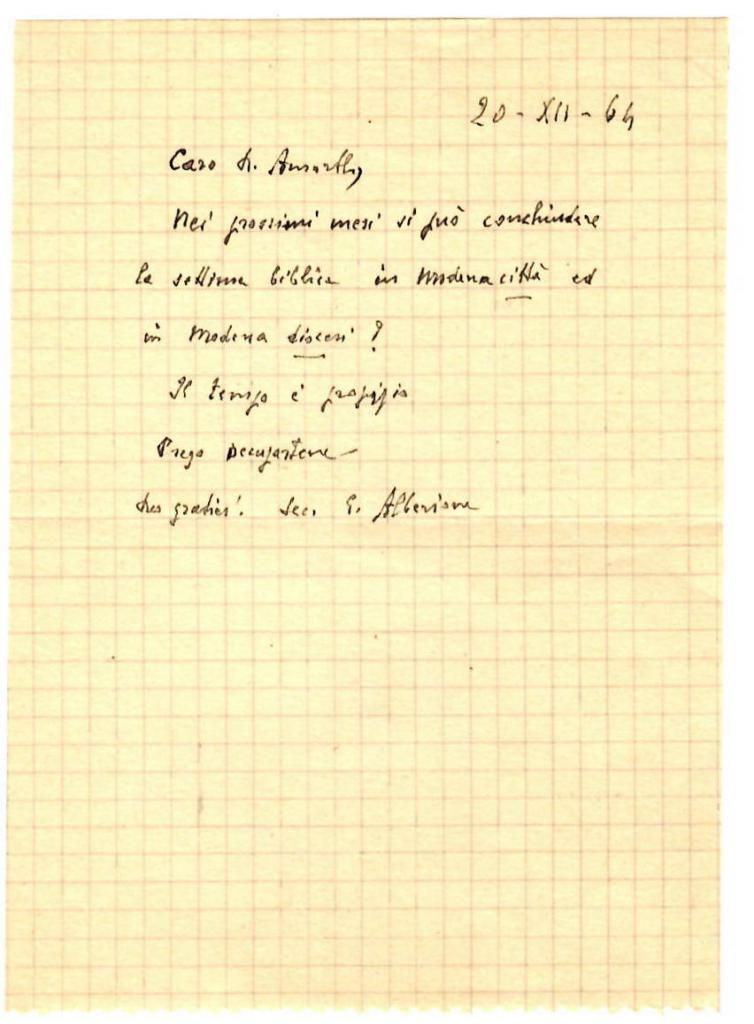 20-XII-64
Caro d.
Nei prossimi mesi si può conchiudere
la settima biblica in Modena città ed
in Modena diocesi?
Il tempo è propizio
Prego occupartene
Deo gratias! Sac. G. Alberione